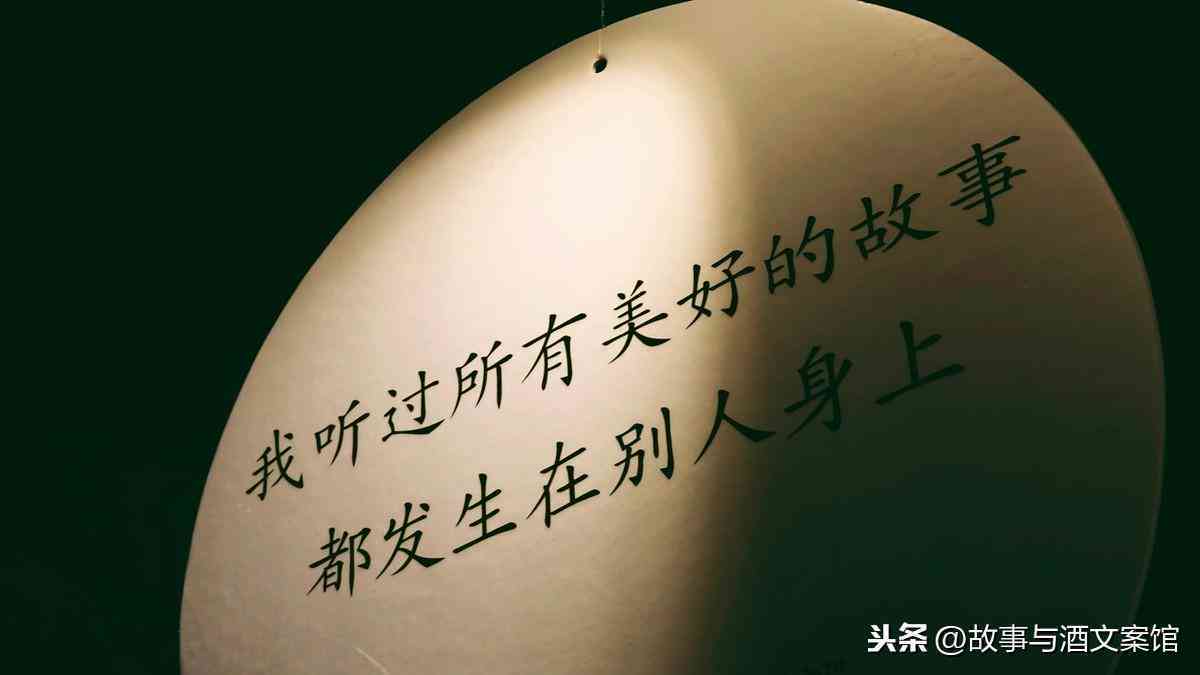 我听过所有美好的故事
都发生在别人身上
头条 @故事与酒文案馆